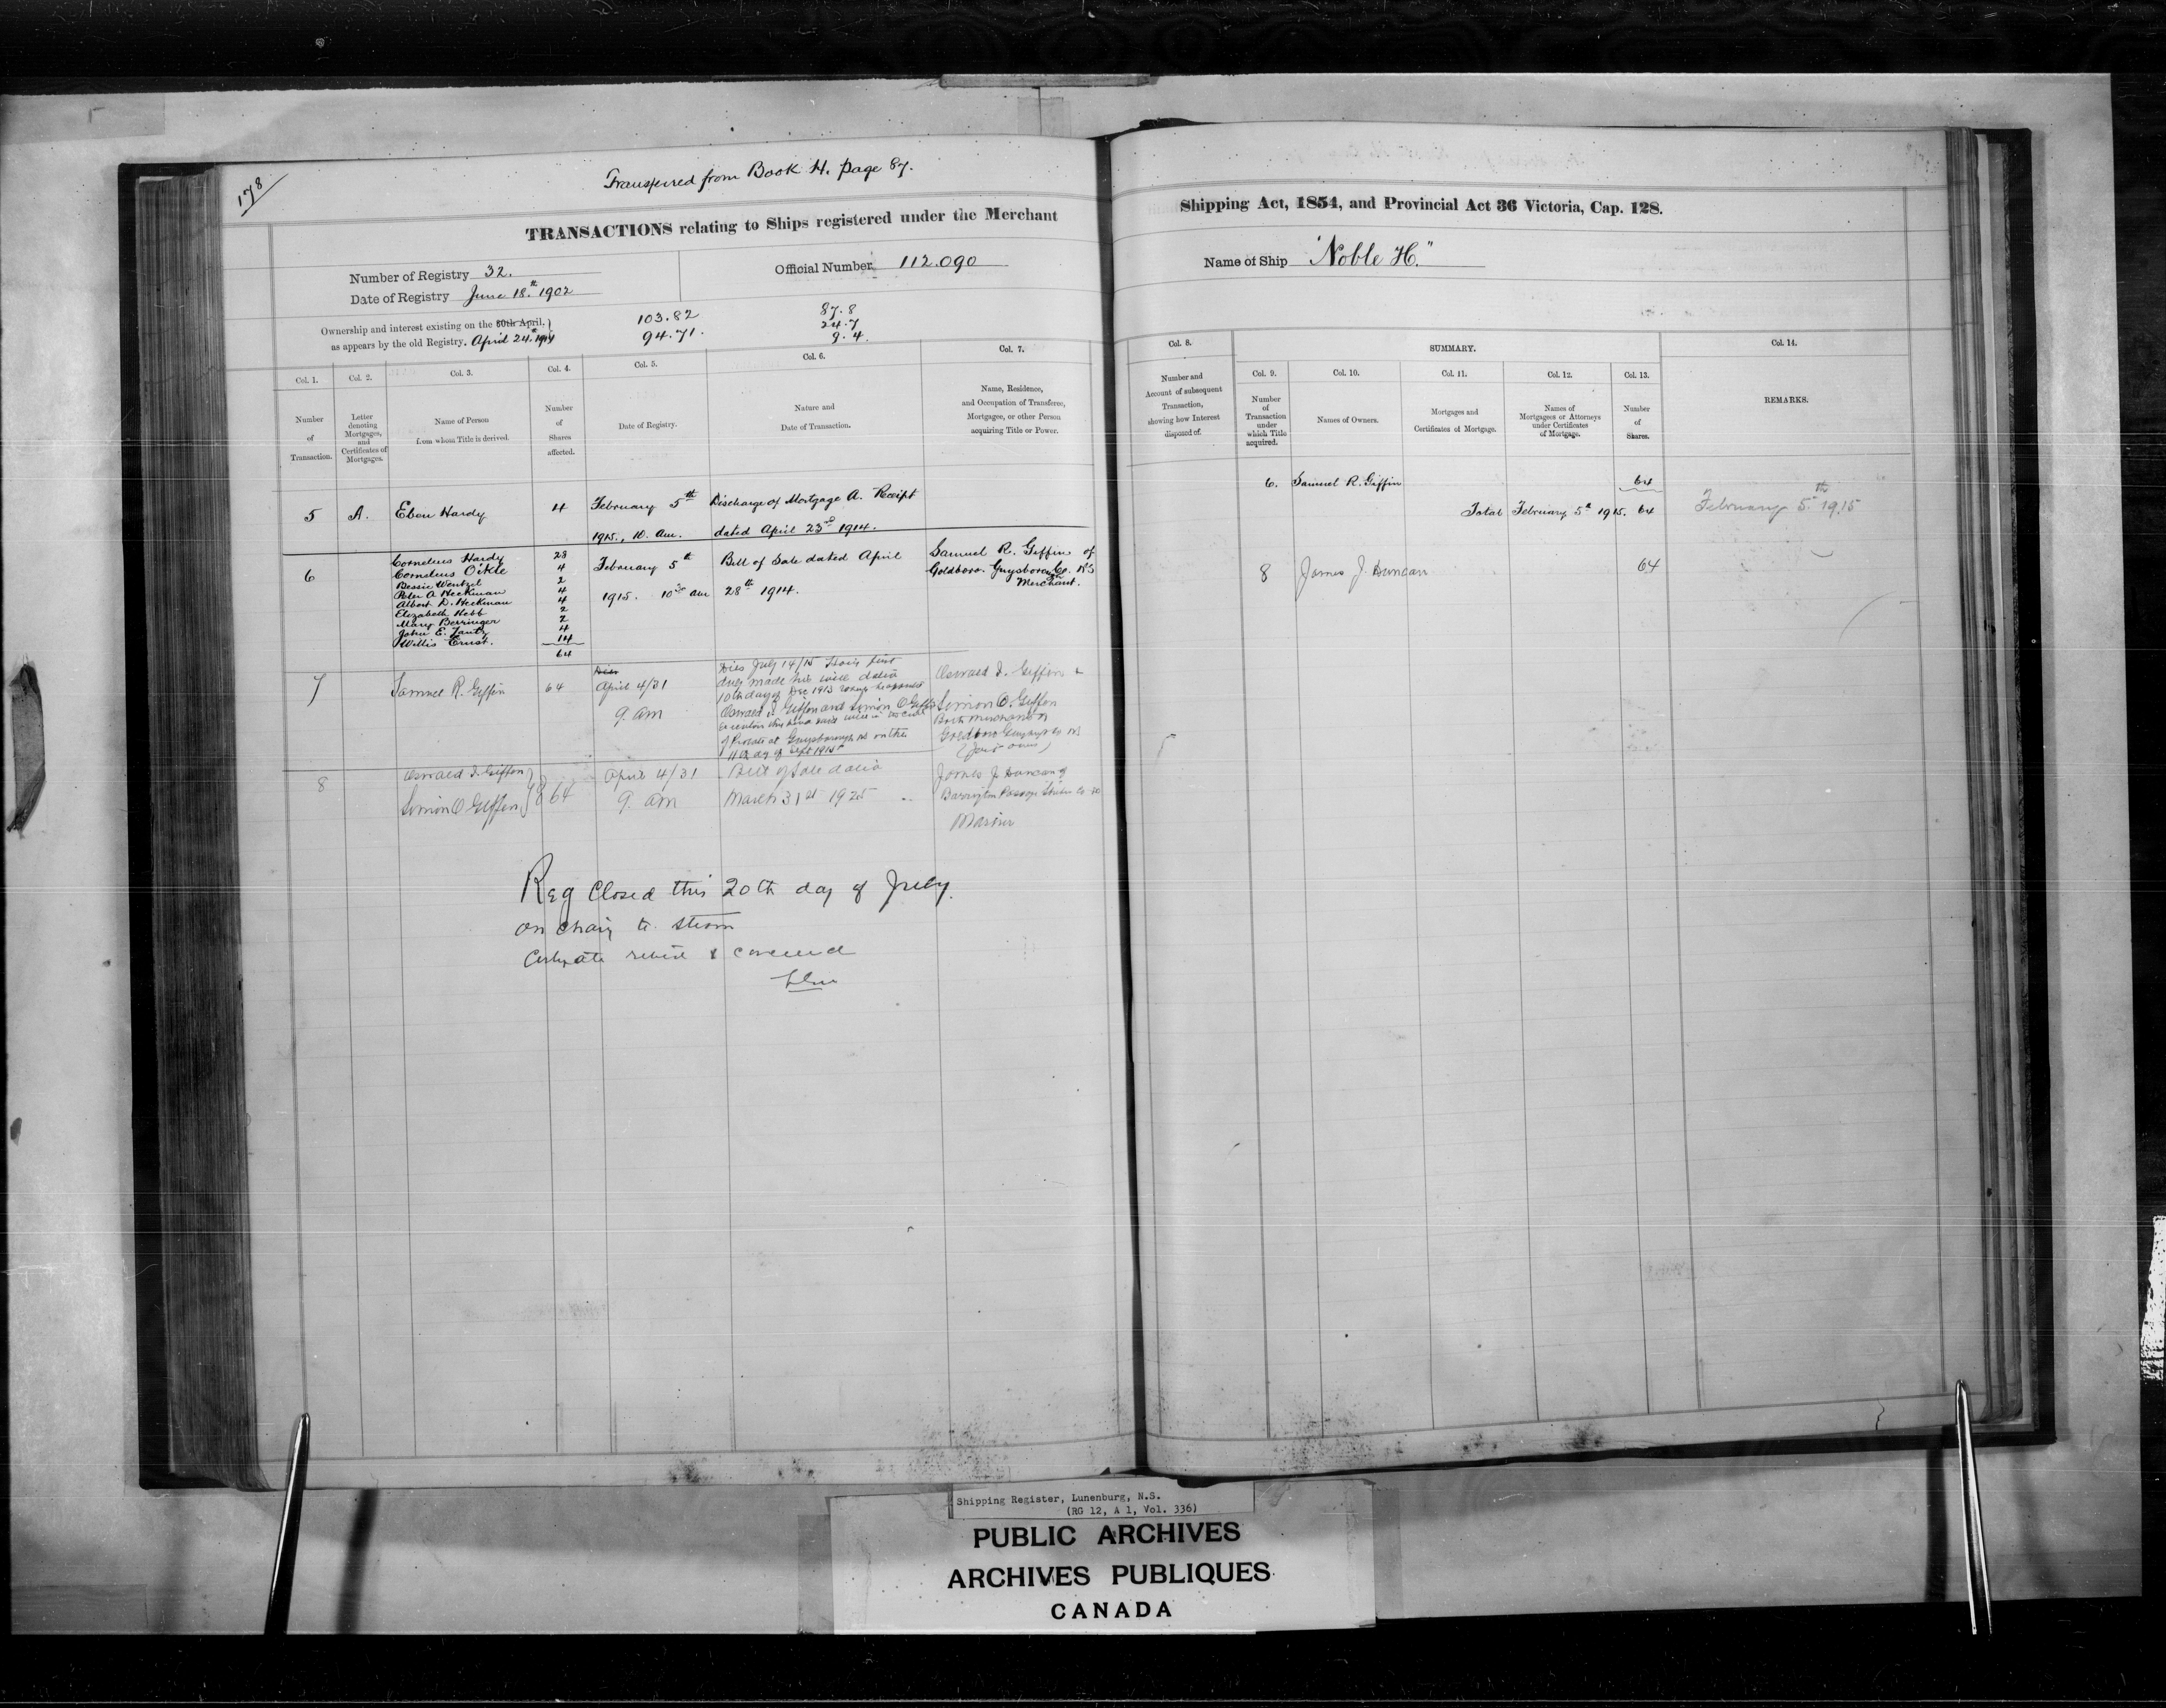 178
Transferred from Book H. page 87.
TRANSACTIONS relating to Ships registered under the Merchant
Shipping Act, 1854, and Provincial Act 36 Victoria, Cap. 128.
Number of Registry 32.
Official Number 112.090
Name of Ship "Noble H."
Date of Registry June 18.th 1902
Ownership and interest existing on the 30th April,
as appears by the old Registry. April 24th 1914
103.82
94.71.
87.8
24.7
9.4.
Col. 1.
Col. 2.
Col. 3.
Col. 4.
Col. 5.
Col. 6.
Col. 7.
Number
of
Transaction.
Letter
denoting
Mortgages,
and
Certificates of
Mortgages.
Name of Person
from whom Title is derived.
Number
of
Shares
affected.
Date of Registry.
Nature and
Date of Transaction.
Name, Residence,
and Occupation of Transferee,
Mortgagee, or other Person
acquiring Title or Power.
Col. 8.
Number and
Account of subsequent
Transaction,
showing how Interest
disposed of.
SUMMARY.
Col. 9.
Col. 10.
Col. 11.
Col. 12.
Col. 13.
Col. 14.
Number
of
Transaction
under
which Title
acquired.
Names of Owners.
Mortgages and
Certificates of Mortgage.
Names of
Mortgagees or Attorneys
under Certificates
of Mortgage.
Number
of
Shares.
REMARKS.
5 A. Eben Hardy 4 February 5th Discharge of Mortgage A. Receipt
1915., 10. am. dated April 23rd 1914.
6
Cornelius Hardy 28
Cornelius Oikle 4
Bessie Wentzel 2
Peter A Heckman 4
Albert D. Heckman 4
Elizabeth Hebb 2
Mary Berringer 2
John E. Lantz 4
Willis Ernst. 14
64
February 5th
1915. 10 30 am
Bill of Sale dated April
28th 1914.
Samuel R. Giffin of
Goldboro. Guysboro Co. N.S
Merchant.
7 Samuel R. Giffin 64
Dies
April 4/31
9. am
Dies July 14/15 having first
duly made his will dated
10th day of Dec 1913 appointed
Oswald I. Giffin and Simon O Giffin
of Probate at Guysborough NS on the
11th day of Sept 1915
Oswald I. Giffin &
Simon O. Giffin
Both merchants of
Goldboro Guysboro Co NS
(Joint owners)
8
Oswald I. Giffin
Simon O Giffin
64
April 4/31
9. am
Bill of Sale dated
March 31st 1925
James J. Duncan of
Barrington Passage
Mariner
Reg Closed this 20th day of July.
on chang to steam
6. Samuel R. Giffin 64
Total February 5th 1915. 64
February 5th 1915
8 James J. Duncan 64
Shipping Register, Lunenburg, N.S.
(RG 12, A 1, Vol. 336)
PUBLIC ARCHIVES
ARCHIVES PUBLIQUES
CANADA